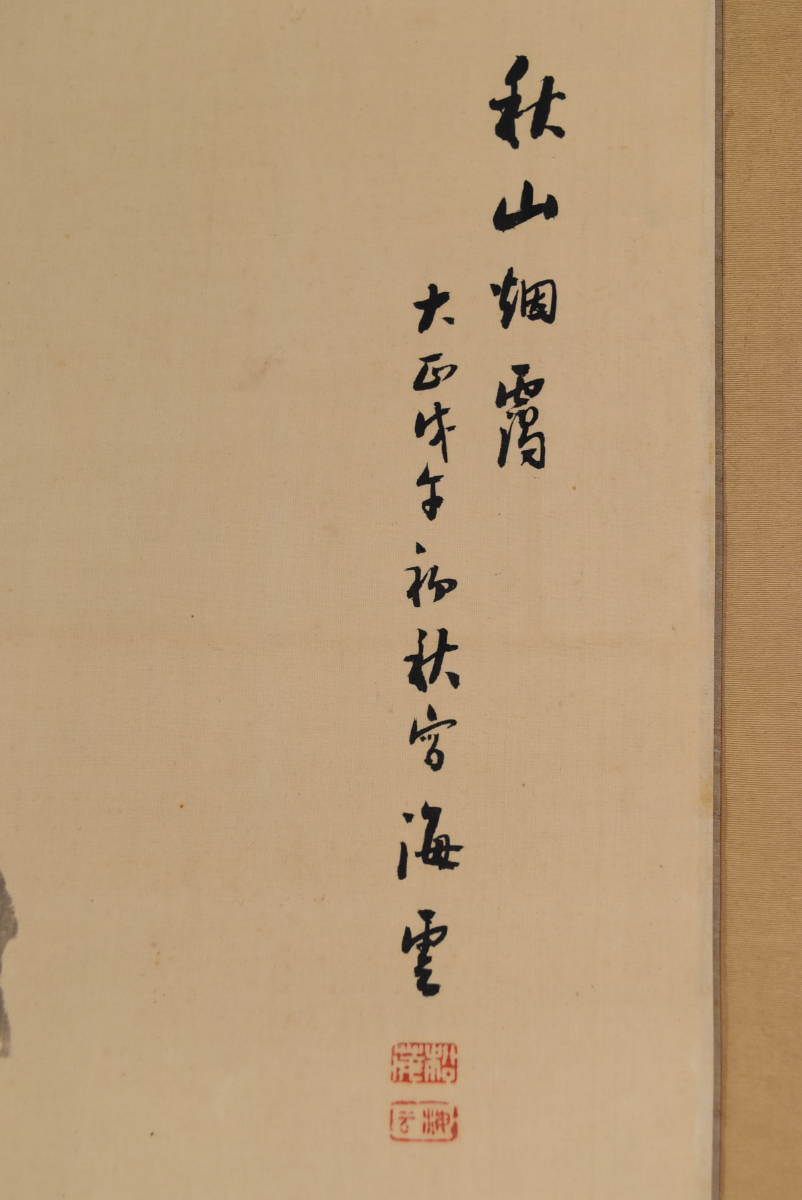 秋山烟靄
大正戊午初秋写海雲
海云